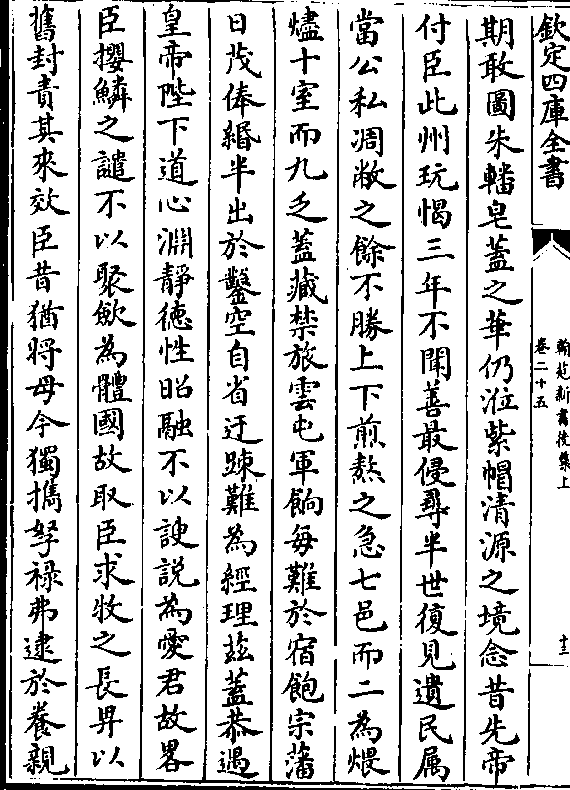 欽定四庫全書
翰苑新書後集上
卷二十五
十三
期敢圖朱轓皁蓋之華仍涖紫帽清源之境念昔先帝
付臣此州玩愒三年不聞善最侵尋半世復見遺民属
當公私凋敝之餘不勝上下煎熬之急七邑而二為煨
燼十室而九乏蓋藏禁旅雲屯軍餉每難於宿飽宗藩
日茂俸緡半出於鑿空自省迂踈難為經理玆蓋恭遇
皇帝陛下道心淵靜德性昭融不以諛説為愛君故畧
臣攖鱗之譴不以聚歛為體國故取臣求牧之長畀以
舊封責其來效臣昔猶將母今獨攜孥禄弗逮於養親